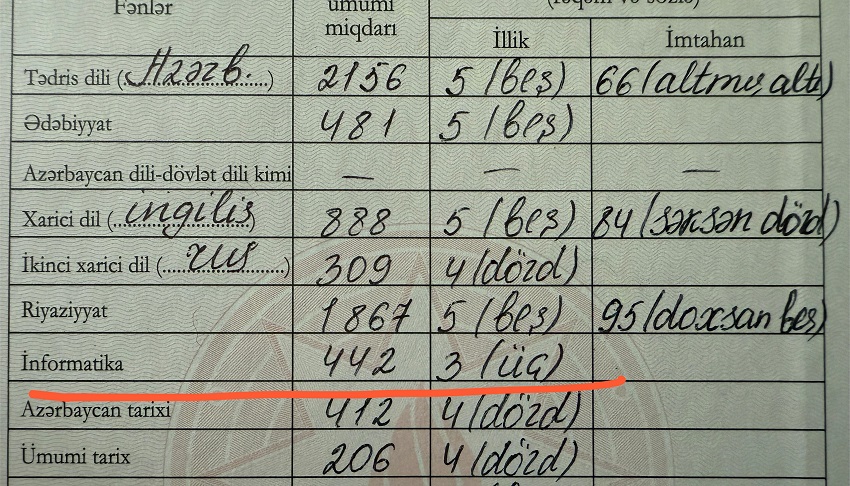 Fənlər ümumi miqdarı (rəqəm və sözlə)
İllik İmtahan
Tədris dili (Azərb.) 2156 5 (beş) 66 (altmış altı)
Ədəbiyyat 481 5 (beş)
Azərbaycan dili-dövlət dili kimi — — —
Xarici dil (ingilis) 888 5 (beş) 84 (səksən dörd)
İkinci xarici dil (rus) 309 4 (dörd)
Riyaziyyat 1867 5 (beş) 95 (doxsan beş)
İnformatika 442 3 (üç)
Azərbaycan tarixi 412 4 (dörd)
Ümumi tarix 206 4 (dörd)